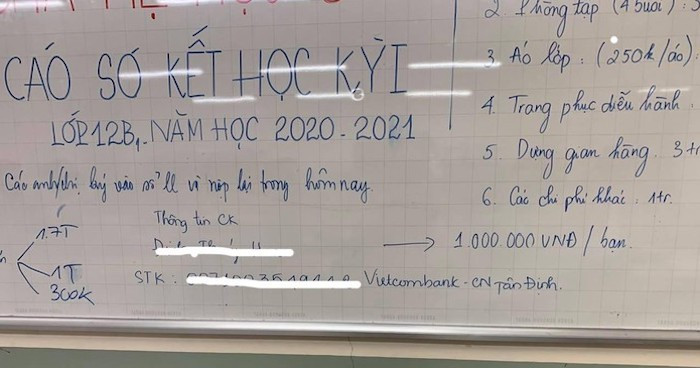 CÁO SƠ KẾT HỌC KỲ I
LỚP 12B1. NĂM HỌC 2020 - 2021
Các anh/chị ký vào sổ LL và nộp lại trong hôm nay.
1.7T
1T
300K
Thông tin CK
STK: Vietcombank - CN Tân Định.
2. Phông tạp (4 buổi) :
3. Áo lớp : (250k/áo) :
4. Trang phục diễu hành :
5. Dựng gian hàng. 3tr
6. Các chi phí khác : 1tr.
→ 1.000.000 VNĐ / bạn.